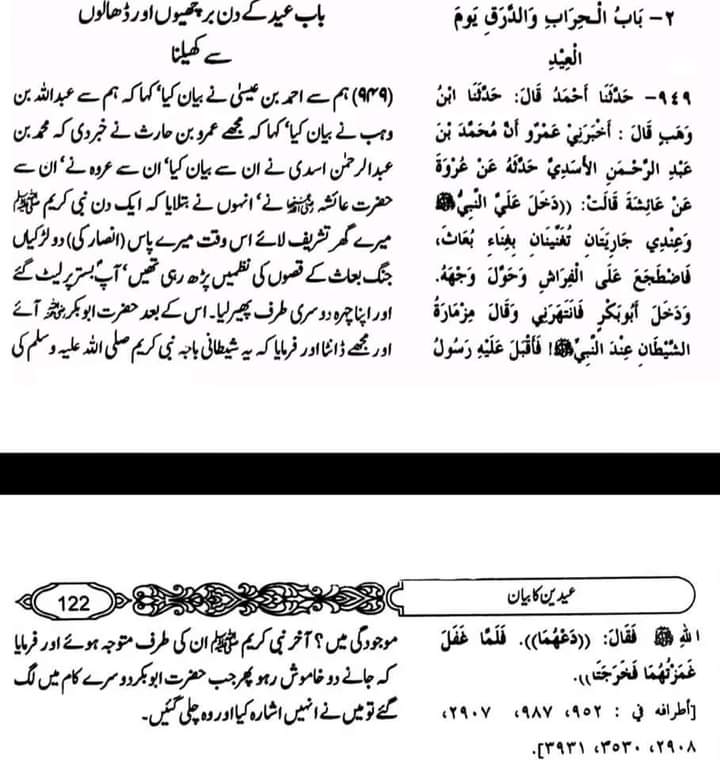 ٢- بَابُ الْحِرَابِ وَالدَّرَقِ يَومَ
الْعِيْدِ
٩٤٩- حَدَّثَنَا أَحْمَدُ قَالَ: حَدَّثَنَا ابْنُ
وَهَبٍ قَالَ : أَخْبَرَنِيْ عَمْرٌو أَنَّ مُحَمَّدَ بْنَ
عَبْدِ الرَّحْمَنِ الأَسَدِيَّ حَدَّثَهُ عَنْ عُرْوَةَ
عَنْ عَائِشَةَ قَالَتْ: ((دَخَلَ عَلَيَّ النَّبِيُّ ﷺ
وَعِنْدِي جَارِيَتَانِ تُغَنِّيَانِ بِغِنَاءِ بُعَاثَ،
فَاضْطَجَعَ عَلَى الْفِرَاشِ وَحَوَّلَ وَجْهَهُ.
وَدَخَلَ أَبُوبَكْرٍ فَانْتَهَرَنِي وَقَالَ مِزْمَارَةُ
الشَّيْطَانِ عِنْدَ النَّبِيِّ ﷺ! فَأَقْبَلَ عَلَيْهِ رَسُولُ
باب عید کے دن برچھیوں اور ڈھالوں
سے کھیلنا
(۹۴۹) ہم سے احمد بن عیسیٰ نے بیان کیا' کہا کہ ہم سے عبداللہ بن
وہب نے بیان کیا' کہا کہ مجھے عمرو بن حارث نے خبر دی کہ محمد بن
عبدالرحمٰن اسدی نے ان سے بیان کیا' ان سے عروہ نے' ان سے
حضرت عائشہ رضی اللہ عنہا نے' انہوں نے بتلایا کہ ایک دن نبی کریم ﷺ
میرے گھر تشریف لائے اس وقت میرے پاس (انصار کی) دو لڑکیاں
جنگ بعاث کے قصوں کی نظمیں پڑھ رہی تھیں' آپؐ بستر پر لیٹ گئے
اور اپنا چہرہ دوسری طرف پھیر لیا۔ اس کے بعد حضرت ابوبکر رضی اللہ عنہ آئے
اور مجھے ڈانٹا اور فرمایا کہ یہ شیطانی باجہ نبی کریم صلی اللہ علیہ وسلم کی
عیدین کا بیان
122
اللهِ ﷺ فَقَالَ: ((دَعْهُمَا)). فَلَمَّا غَفَلَ
غَمَزْتُهُمَا فَخَرَجَتَا)).
[أطرافه في : ٩٥٢، ٩٨٧، ٢٩٠٧،
٢٩٠٨، ٣٥٣٠، ٣٩٣١].
موجودگی میں؟ آخر نبی کریم ﷺ ان کی طرف متوجہ ہوئے اور فرمایا
کہ جانے دو خاموش رہو پھر جب حضرت ابوبکر دوسرے کام میں لگ
گئے تو میں نے انہیں اشارہ کیا اور وہ چلی گئیں۔